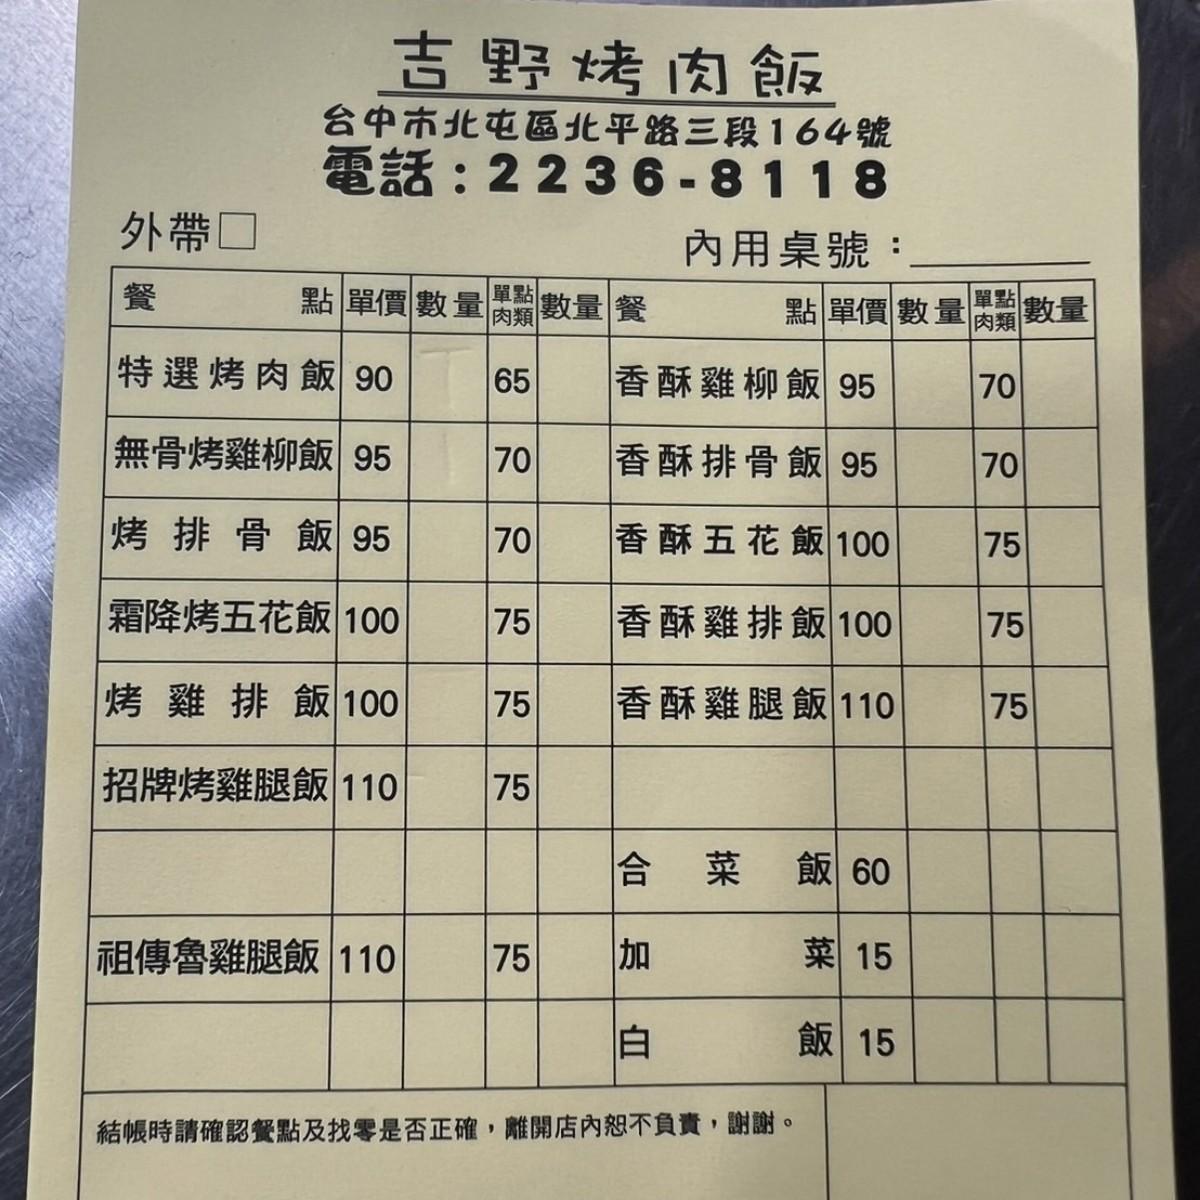 吉野烤肉飯
台中市北屯區北平路三段164號
電話：2236-8118
外帶□
內用桌號：
餐點 單價 數量 單點肉類 數量 餐點 單價 數量 單點肉類 數量
特選烤肉飯 90 65 香酥雞柳飯 95 70
無骨烤雞柳飯 95 70 香酥排骨飯 95 70
烤排骨飯 95 70 香酥五花飯 100 75
霜降烤五花飯 100 75 香酥雞排飯 100 75
烤雞排飯 100 75 香酥雞腿飯 110 75
招牌烤雞腿飯 110 75
合菜飯 60
祖傳魯雞腿飯 110 75 加菜 15
白飯 15
結帳時請確認餐點及找零是否正確，離開店內恕不負責，謝謝。